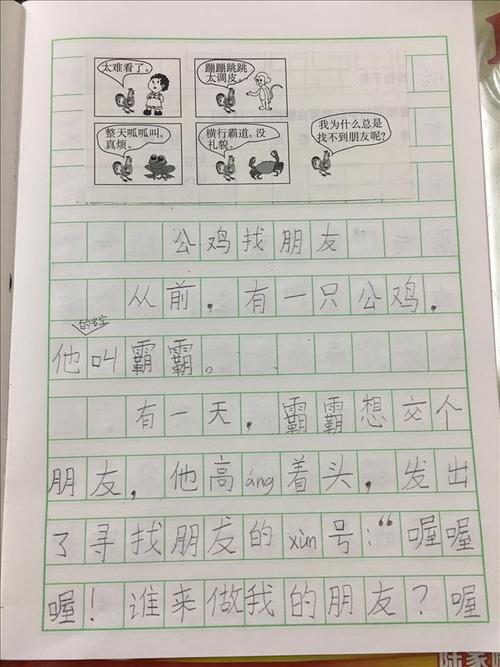 太难看了。
蹦蹦跳跳
太调皮。
整天呱呱叫,
真烦。
横行霸道,没
礼貌。
我为什么总是
找不到朋友呢?
公鸡找朋友
从前,有一只公鸡.
的名字
他叫霸霸。
有一天,霸霸想交个
朋友,他高áng着头,发出
了寻找朋友的xùn号:“喔喔
喔!谁来做我的朋友?喔
陆家